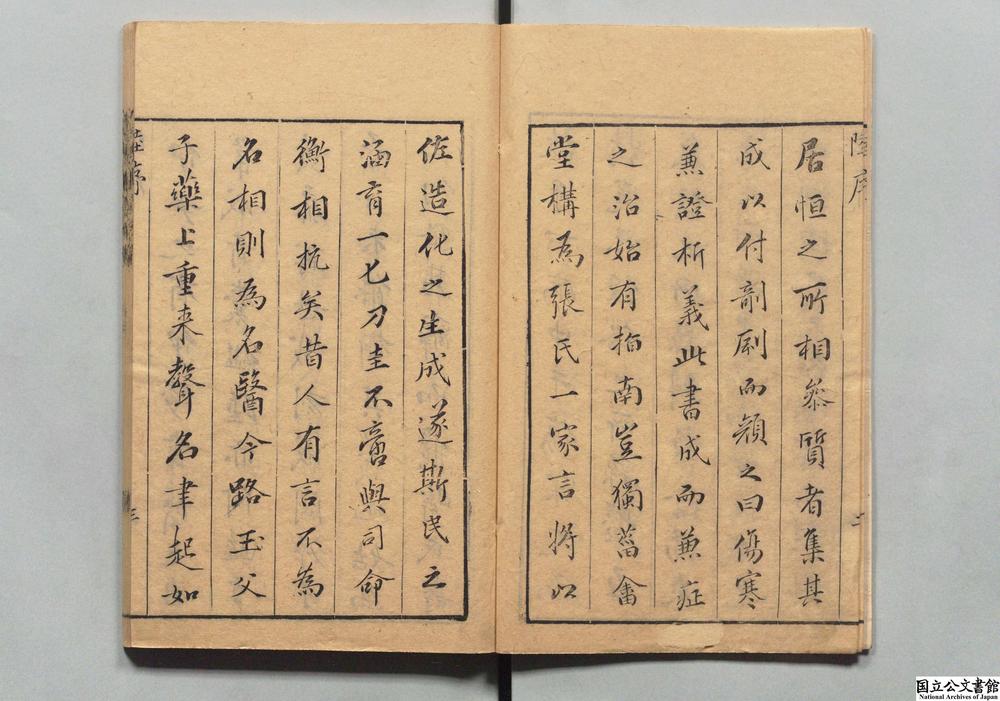 居恒之所相叅質者集其
成以付剞劂而顏之曰傷寒
兼證析義此書成而兼症
之治始有指南豈獨菑畬
堂構為張氏一家言將以
佐造化之生成遂斯民之
涵育一匕刀圭不啻與司命
衡相抗矣昔人有言不為
名相則為名醫今路玉父
子藥上重来聲名聿起如
陸序
二
陸序
三
国立公文書館
National Archives of Japan